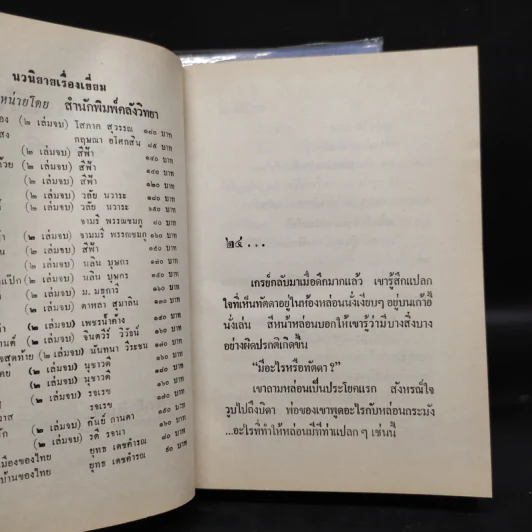 นวนิยายเรื่องเยี่ยม
หน่ายโดย สำนักพิมพ์คลังวิทยา
(๒ เล่มจบ) โสภาค สุวรรณ ๑๘๐ บาท
กฤษณา อโศกสิน ๘๕ บาท
(๒ เล่มจบ) สีฟ้า ๑๔๐ บาท
(๒ เล่มจบ) สีฟ้า ๑๔๐ บาท
(๒ เล่มจบ) สีฟ้า ๑๒๐ บาท
(๒ เล่มจบ) วลัย นวาระ ๑๘๐ บาท
(๒ เล่มจบ) วลัย นวาระ ๑๕๐ บาท
จามรี พรรณชมภู ๘๐ บาท
(๒ เล่มจบ) จามมรี พรรณชมภู ๑๖๐ บาท
(๒ เล่มจบ) สีฟ้า ๑๕๐ บาท
(๒ เล่มจบ) นลิน บุษกร
(๒ เล่มจบ) นลิน บุษกร
(๒ เล่มจบ) ม. มธุการี ๑๖๐ บาท
(๒ เล่มจบ) ดาหลา สุมาลิน ๑๘๐ บาท
(๒ เล่มจบ) เพชรน้ำค้าง ๑๖๐ บาท
(๒ เล่มจบ) จินตวีร์ วิวัธน์ ๑๘๐ บาท
สุดท้าย (๒ เล่มจบ) นันทนา วีระชน ๑๘๐ บาท
(๒ เล่มจบ) นุชาวดี ๑๖๐ บาท
(๒ เล่มจบ) นุชาวดี ๑๘๐ บาท
(๒ เล่มจบ) รอเรข
รอเรข
(๒ เล่มจบ) คันธ์ กานดา ๑๕๐ บาท
(๒ เล่มจบ) รตี รจนา ๑๖๐ บาท
เมืองของไทย ยุทธ เดชคำรณ ๘๐ บาท
บ้านของไทย ยุทธ เดชคำรณ ๕๐ บาท
๒๕ . . .
เกรย์กลับมาเมื่อดึกมากแล้ว เขารู้สึกแปลก
ใจที่เห็นทัดดาอยู่ในห้องหล่อนนั่งเงียบๆ อยู่บนเก้าอี้
นั่งเล่น สีหน้าหล่อนบอกให้เขารู้ว่ามีบางสิ่งบาง
อย่างผิดปรกติเกิดขึ้น
“มีอะไรหรือทัดดา ?”
เขาถามหล่อนเป็นประโยคแรก สังหรณ์ใจ
วูบไปถึงบิดา พ่อของเขาพูดอะไรกับหล่อนกระมัง
...อะไรที่ทำให้หล่อนมีทีท่าแปลก ๆ เช่นนี้